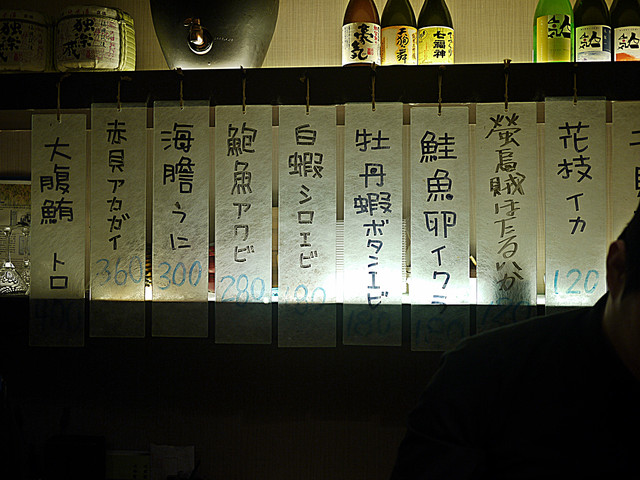 大腹鮪 トロ
400
赤貝アカガイ
360
海膽うに
300
鮑魚アワビ
280
白蝦シロエビ
180
牡丹蝦ボタンエビ
180
鮭魚卵イクラ
180
螢烏賊ほたるいか
花枝イカ
120
七福神